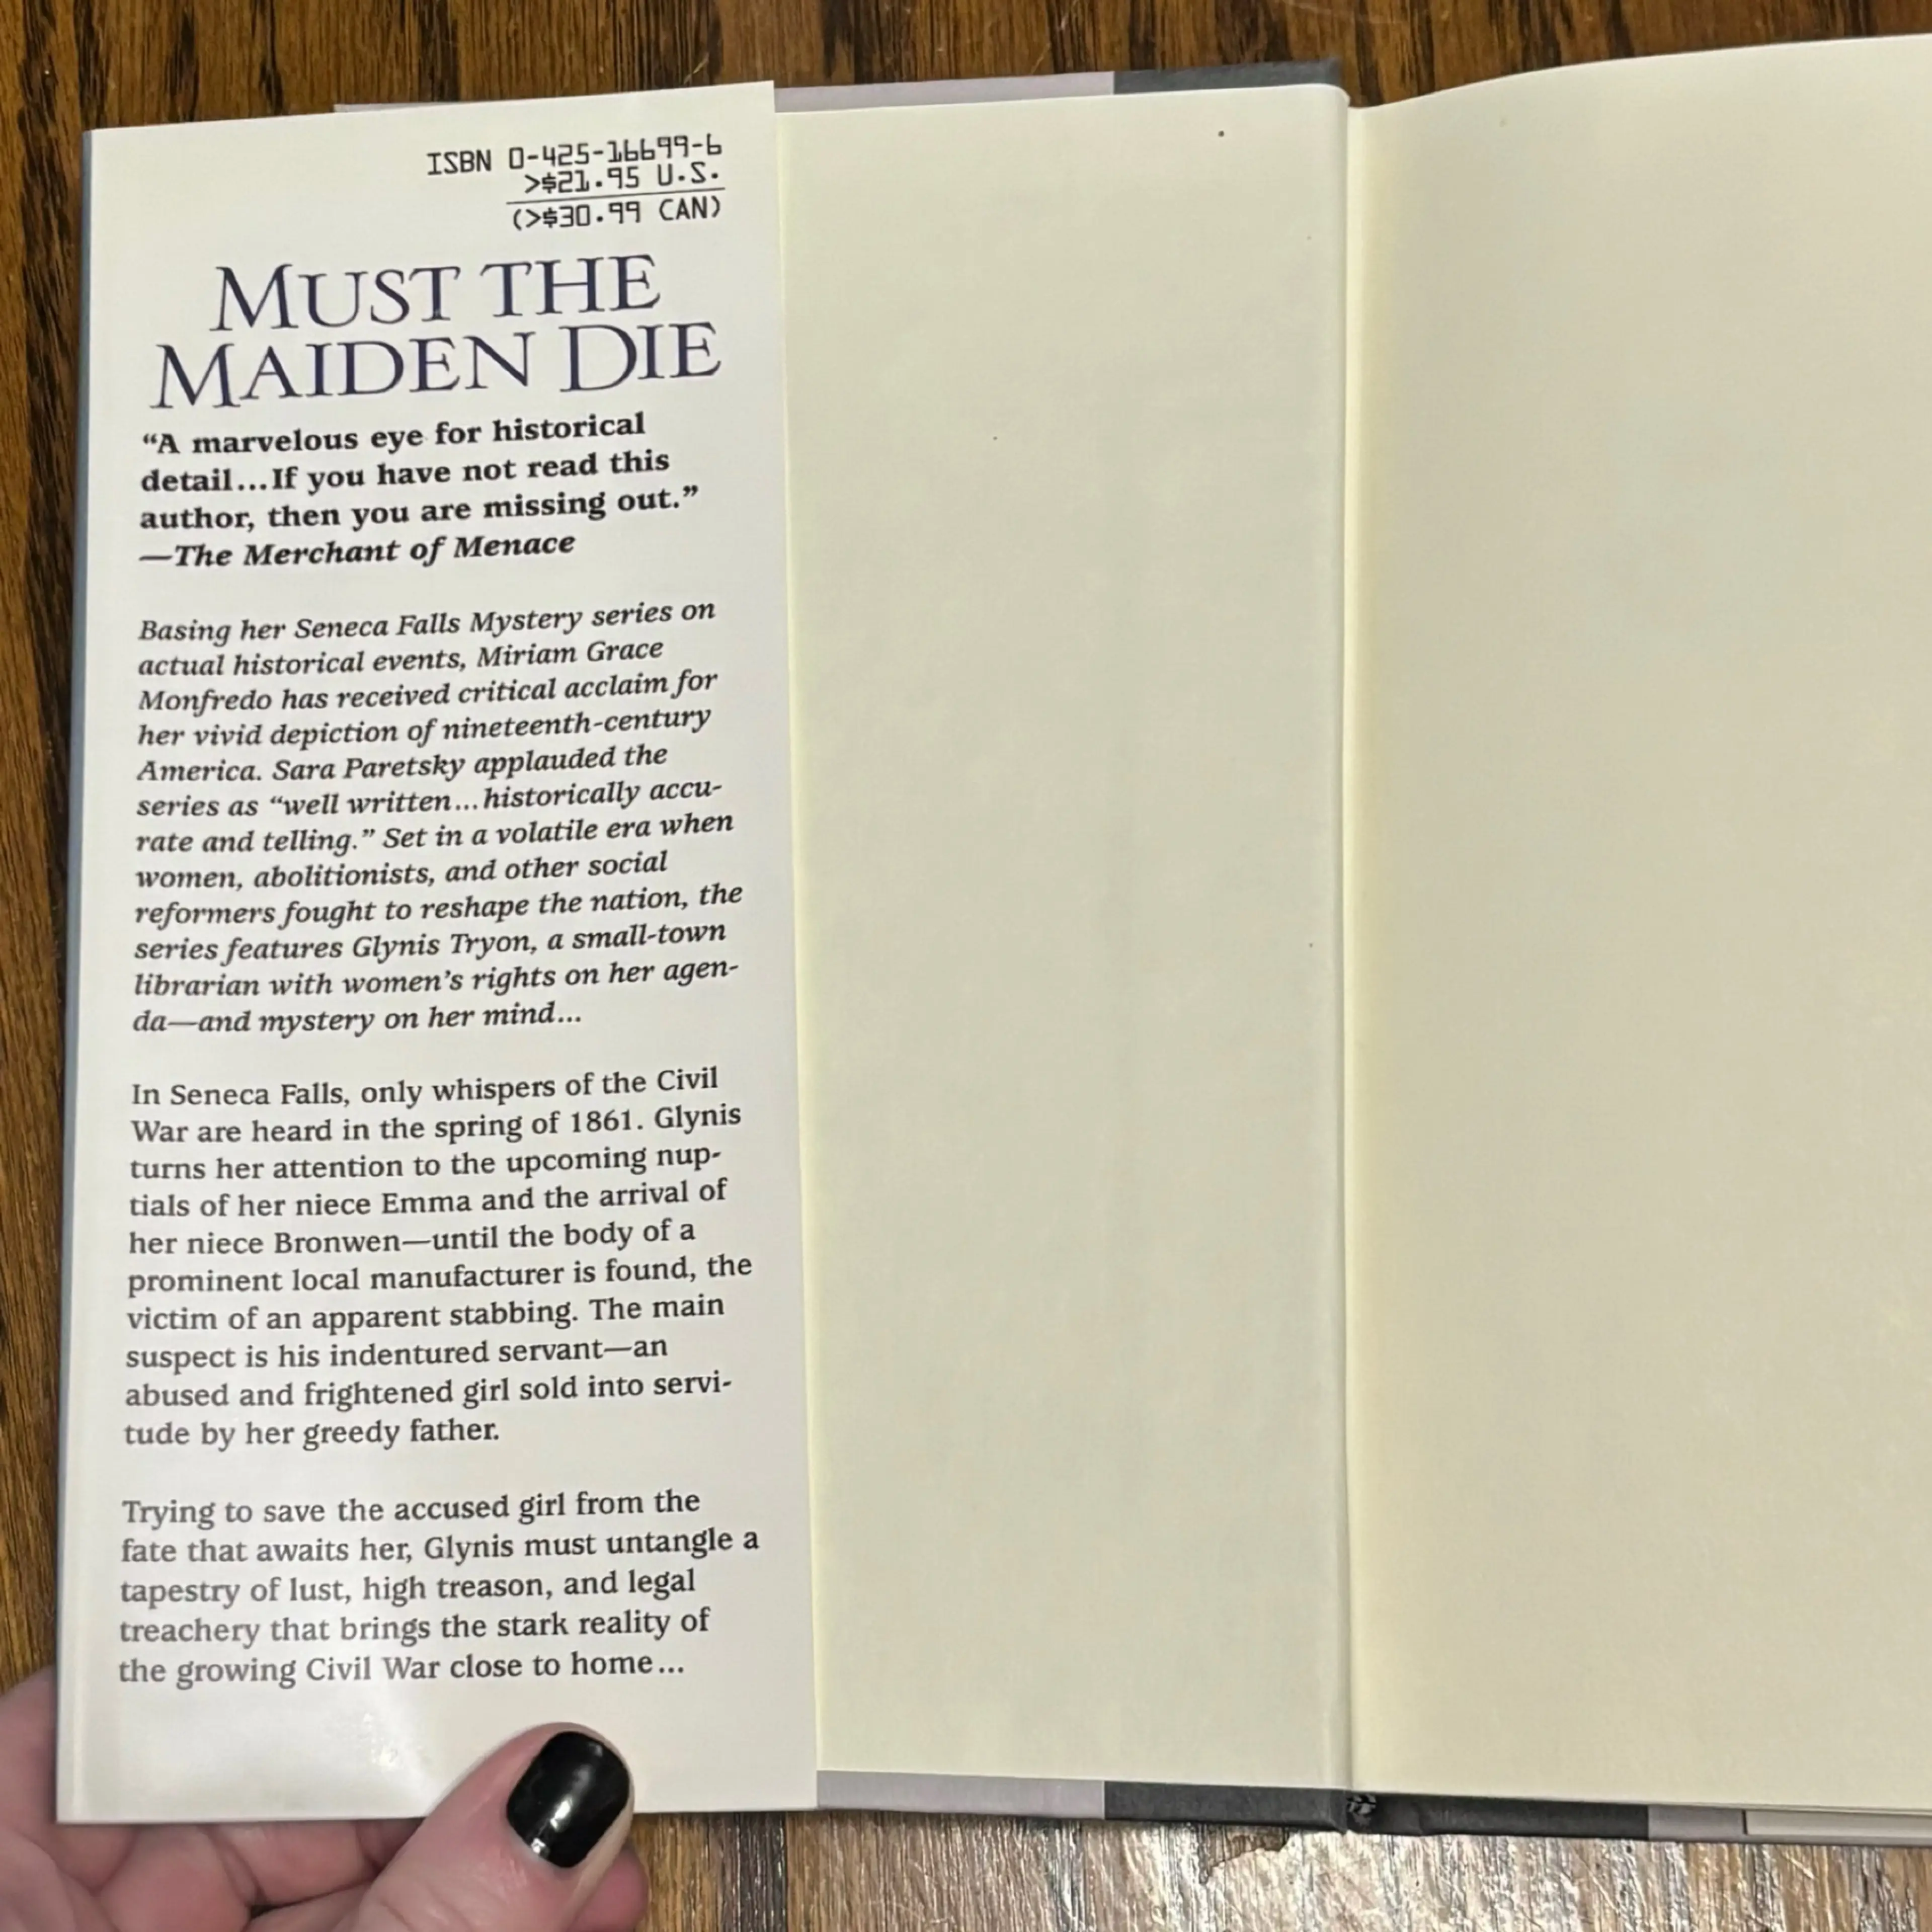 ISBN 0-425-16699-6
>$21.95 U.S.
(>$30.99 CAN)
MUST THE
MAIDEN DIE
“A marvelous eye for historical
detail...If you have not read this
author, then you are missing out.”
—The Merchant of Menace
Basing her Seneca Falls Mystery series on
actual historical events, Miriam Grace
Monfredo has received critical acclaim for
her vivid depiction of nineteenth-century
America. Sara Paretsky applauded the
series as “well written...historically accu-
rate and telling.” Set in a volatile era when
women, abolitionists, and other social
reformers fought to reshape the nation, the
series features Glynis Tryon, a small-town
librarian with women’s rights on her agen-
da—and mystery on her mind...
In Seneca Falls, only whispers of the Civil
War are heard in the spring of 1861. Glynis
turns her attention to the upcoming nup-
tials of her niece Emma and the arrival of
her niece Bronwen—until the body of a
prominent local manufacturer is found, the
victim of an apparent stabbing. The main
suspect is his indentured servant—an
abused and frightened girl sold into servi-
tude by her greedy father.
Trying to save the accused girl from the
fate that awaits her, Glynis must untangle a
tapestry of lust, high treason, and legal
treachery that brings the stark reality of
the growing Civil War close to home...